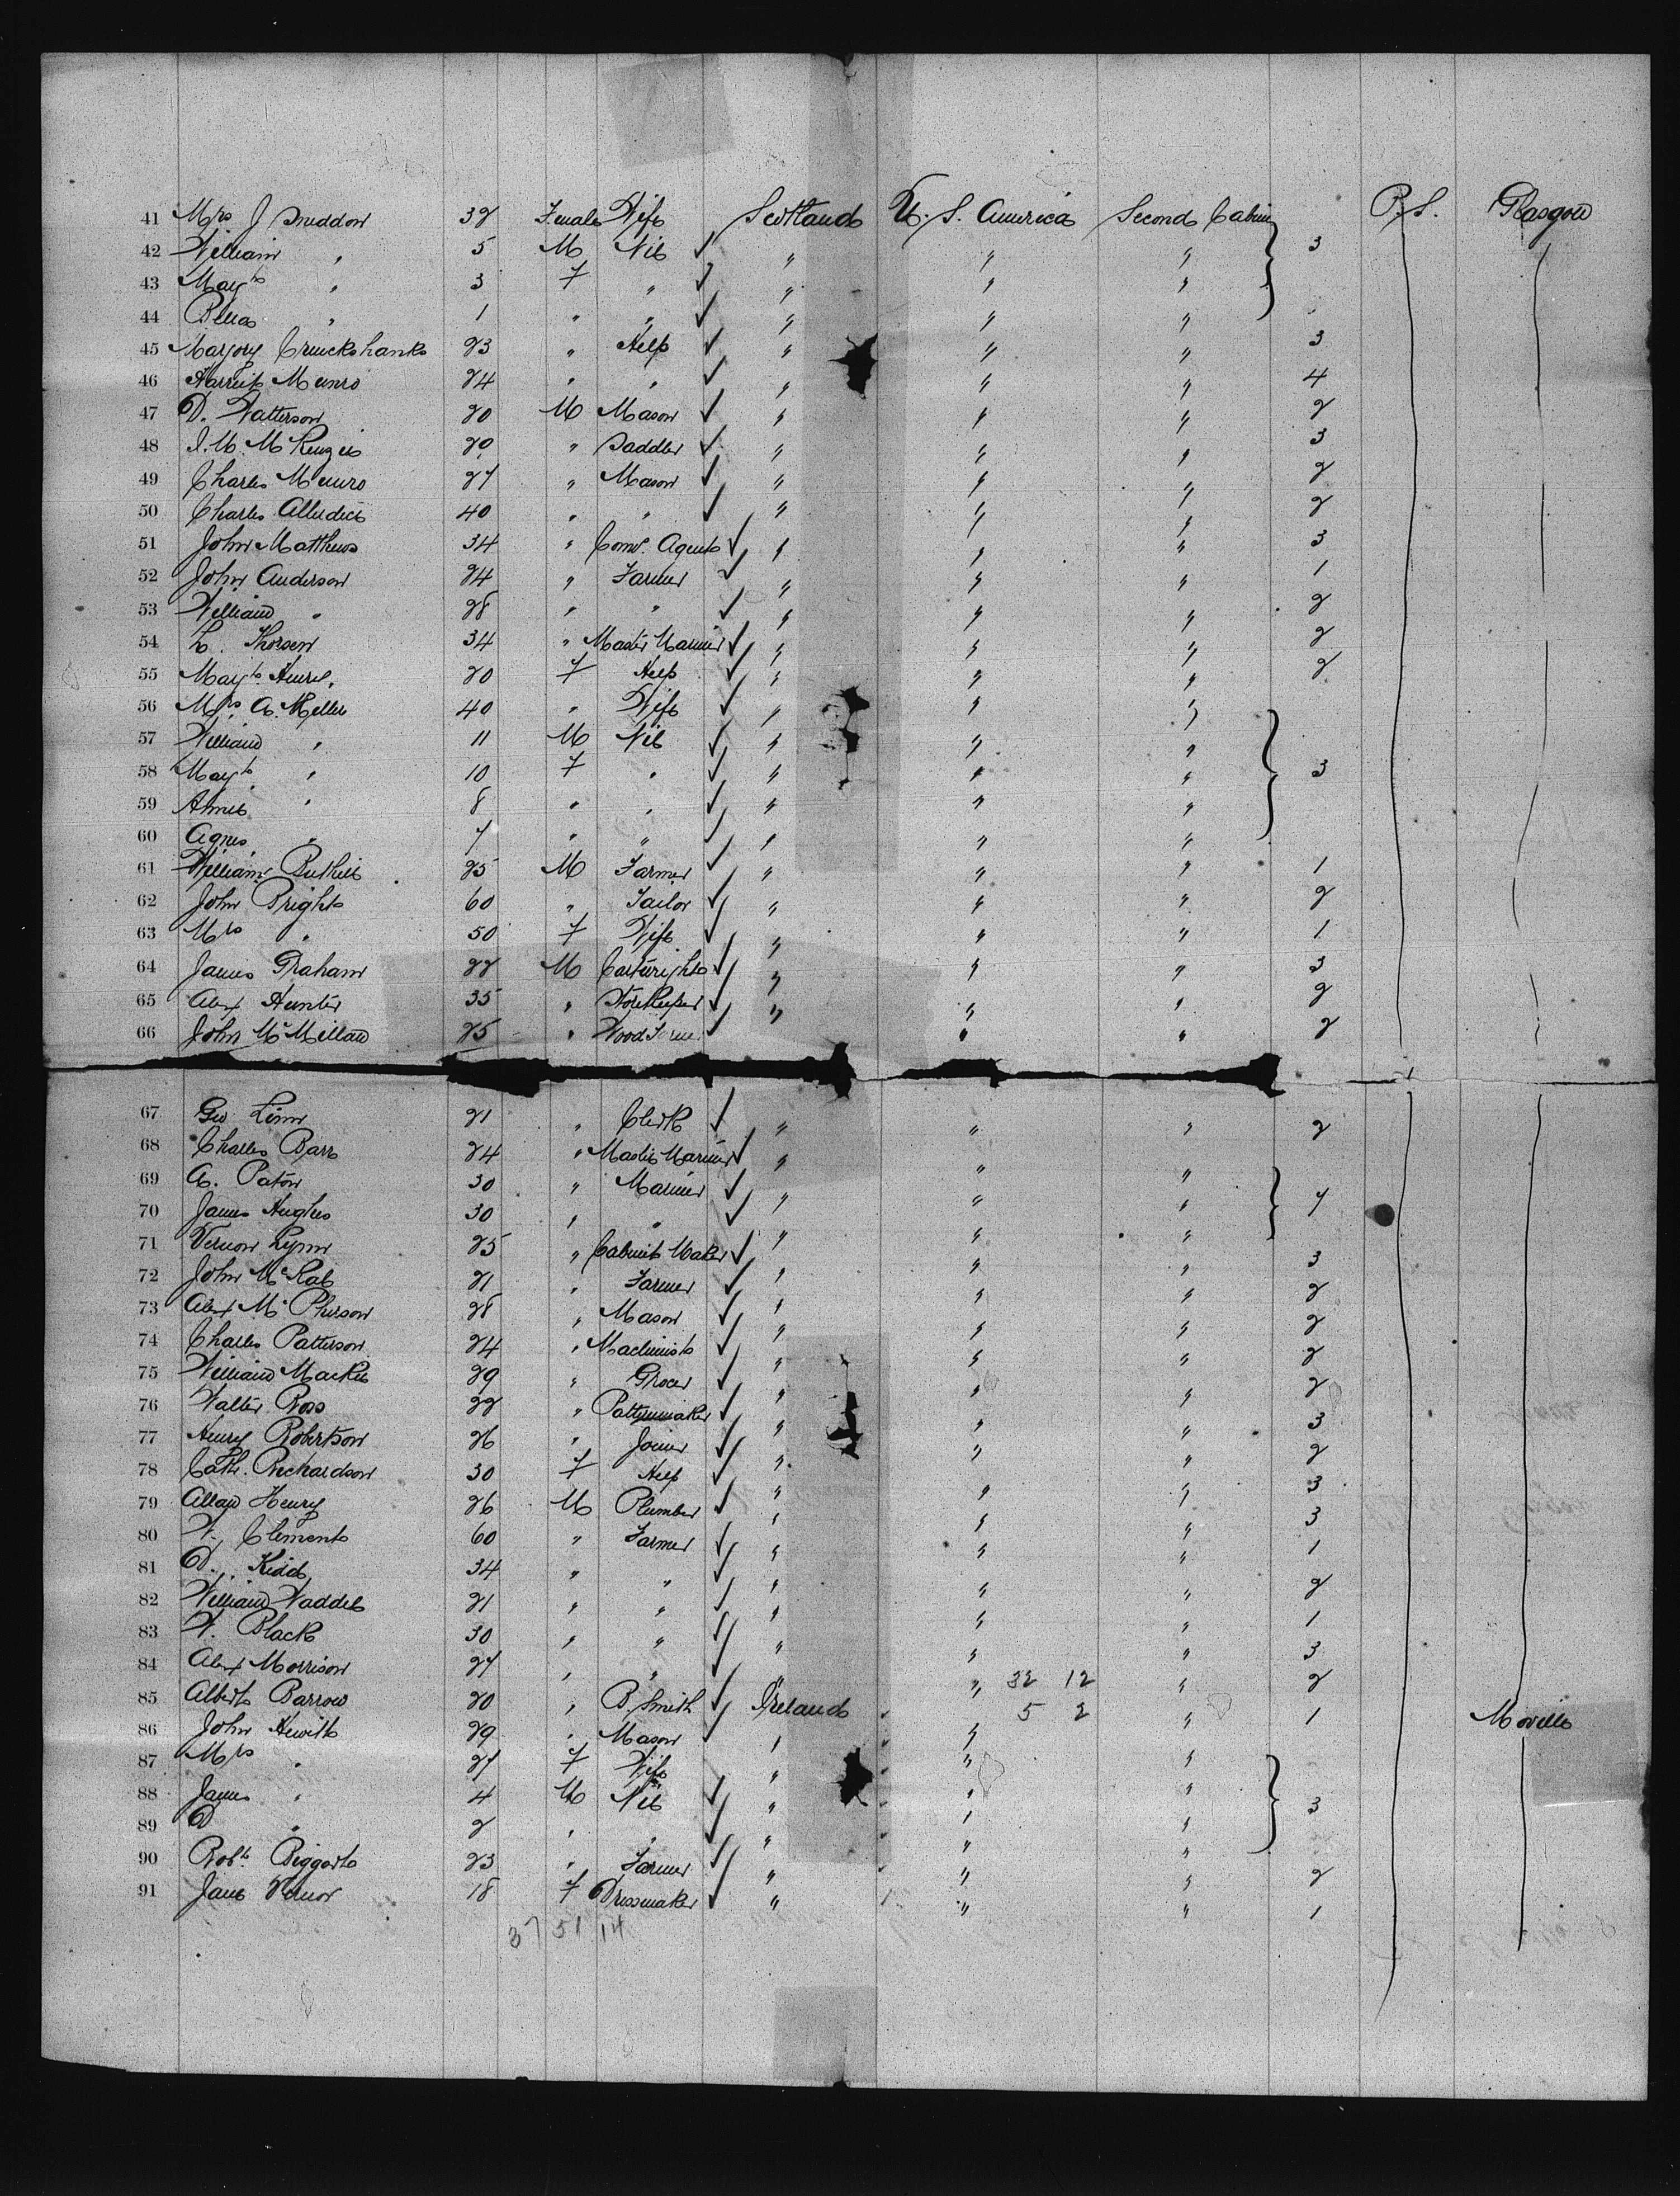 41 Mrs J Sneddon 32 Female Wife Scotland U. S. America Second Cabin P. S. Glasgow
42 William " 5 M Nil " " " 3
43 Magt " 3 F " " " "
44 Bella " 1 " " " " "
45 Marjory Cruickshank 23 " Help " " " 3
46 Harriet Munro 24 " " " " " 4
47 D. Watterson 20 M Mason " " " 2
48 McKenzie 20 " Saddler " " " 3
49 Charles Munro 27 " Mason " " " 2
50 Charles Alledice 40 " " " " " 2
51 John Matthews 34 " Coml. Agent " " " 3
52 John Anderson 24 " Farmer " " " 1
53 William " 28 " " " " " 2
54 L. Thorsen 34 " Master Mariner " " " 2
55 Magt Henry 20 F Help " " " 2
56 Mrs A. Miller 40 " Wife " " "
57 William " 11 M Nil " " "
58 Magt " 10 F " " " " 3
59 Annie " 8 " " " " "
60 Agnes " 7 " " " " "
61 William Buthill 25 M Farmer " " " 1
62 John Bright 60 " Tailor " " " 2
63 Mrs " 50 F Wife " " " 1
64 James Graham 22 M Cartwright " " " 3
65 Alex Hunter 35 " Storekeeper " " " 2
66 John McMillan 25 " Wood " " 2
67 Geo Linn 21 " Clerk " " " 2
68 Charles Barr 24 " Master Mariner " " "
69 A. Paton 30 " Mariner " " " 7
70 James Hughes 30 " " " " "
71 Vernon Lynn 25 " Cabinet Maker " " " 3
72 John McRae 21 " Farmer " " " 2
73 Alex McPherson 28 " Mason " " " 2
74 Charles Patterson 24 " Machinist " " " 2
75 William Mackie 29 " Grocer " " " 2
76 Walter Ross 22 " Patternmaker " " " 3
77 Henry Robertson 26 " Joiner " " " 2
78 Cath. Richardson 30 F Help " " " 3
79 Allan Henry 26 M Plumber " " " 3
80 W. Clement 60 " Farmer " " " 1
81 D. Kidd 34 " " " " " 2
82 William Waddel 21 " " " " " 1
83 W. Black 30 " " " " " 3
84 Alex Morrison 27 " " " " 32 12 " 2
85 Albert Barrow 20 " B. Smith Ireland " 5 2 " 1 Moville
86 John Hewitt 29 " Mason " " "
87 Mrs " 27 F Wife " " "
88 James " 4 M Nil " " " 3
89 D " 2 " " " " "
90 Robt. Biggart 23 " Farmer " " " 2
91 Jane Vernor 18 F Dressmaker " " " 1
37 51 14